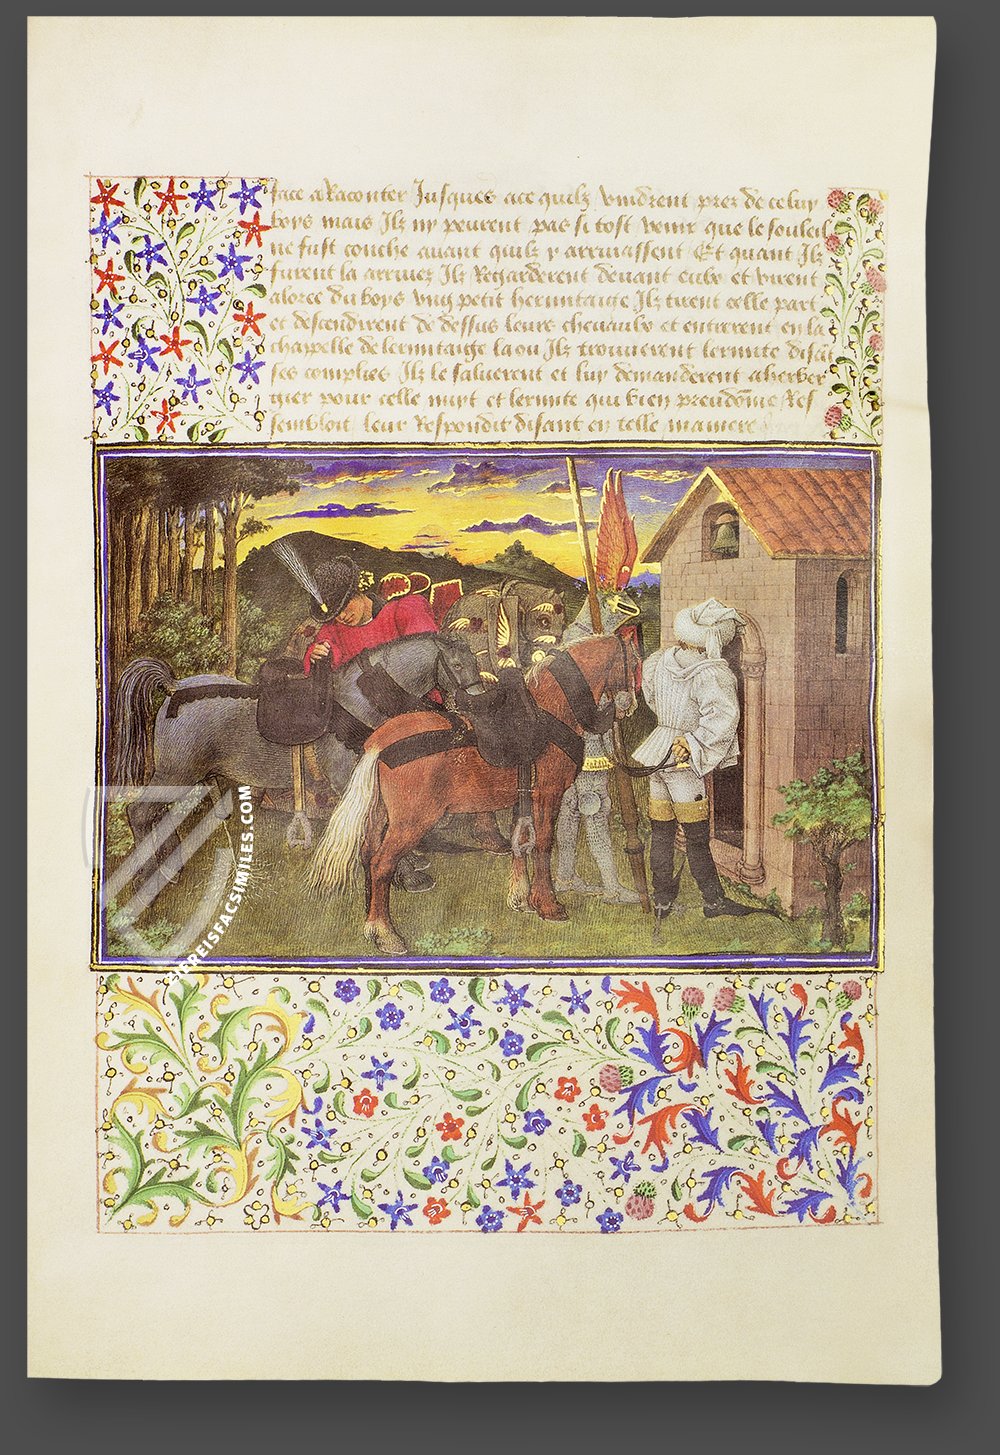 face a Raconter Jusques ace quilz vindrent prez de celuy
boys mais Ilz ny peurent pas si tost venir que le souleil
ne fust couche auant quilz y arriuassent Et quant Ilz
furent la arriuez Ilz Regarderent deuant eulx et virent
aloree du boys vng petit hermitaige Ilz tirent celle part
et descendirent de dessus leurs cheuaulx et entrerent en la
chappelle de lermitaige la ou Ilz trouuerent lermite disāt
ses complies Ilz le saluerent et luy demanderent a herber
gier pour celle nuyt et lermite qui bien preudōme Res
sembloit leur Respondit disant en telle maniere
FACSIMILES.COM